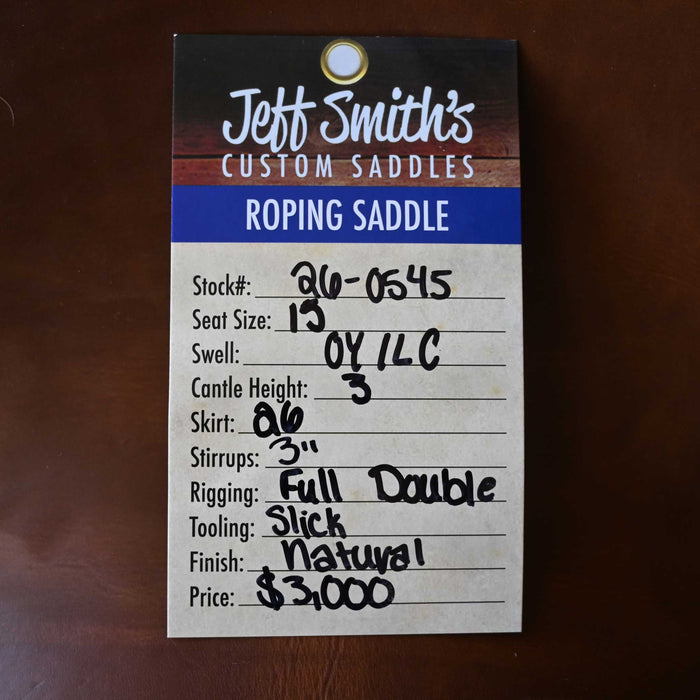 Jeff Smith's
CUSTOM SADDLES
ROPING SADDLE
Stock#: 26-0545
Seat Size: 15
Swell: OY ILC
Cantle Height: 3
Skirt: 26
Stirrups: 3"
Rigging: Full Double
Tooling: Slick
Finish: Natural
Price: $3,000